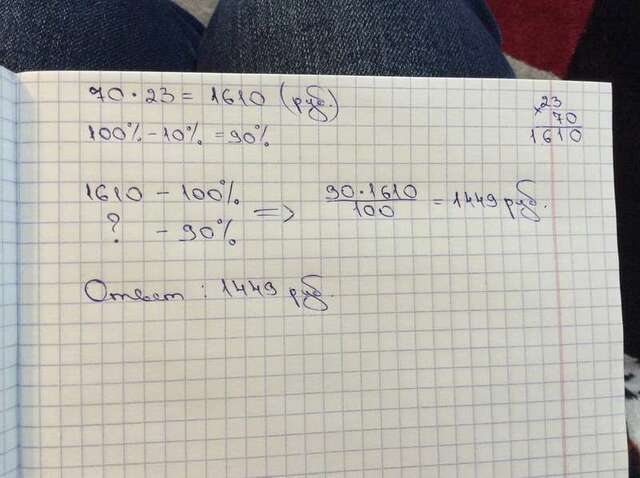 70 · 23 = 1610 (руб.)
100% - 10% = 90%
× 23
70
1610
1610 - 100%
? - 90%
=> 90 · 1610 / 100 = 1449 руб.
Ответ : 1449 руб.